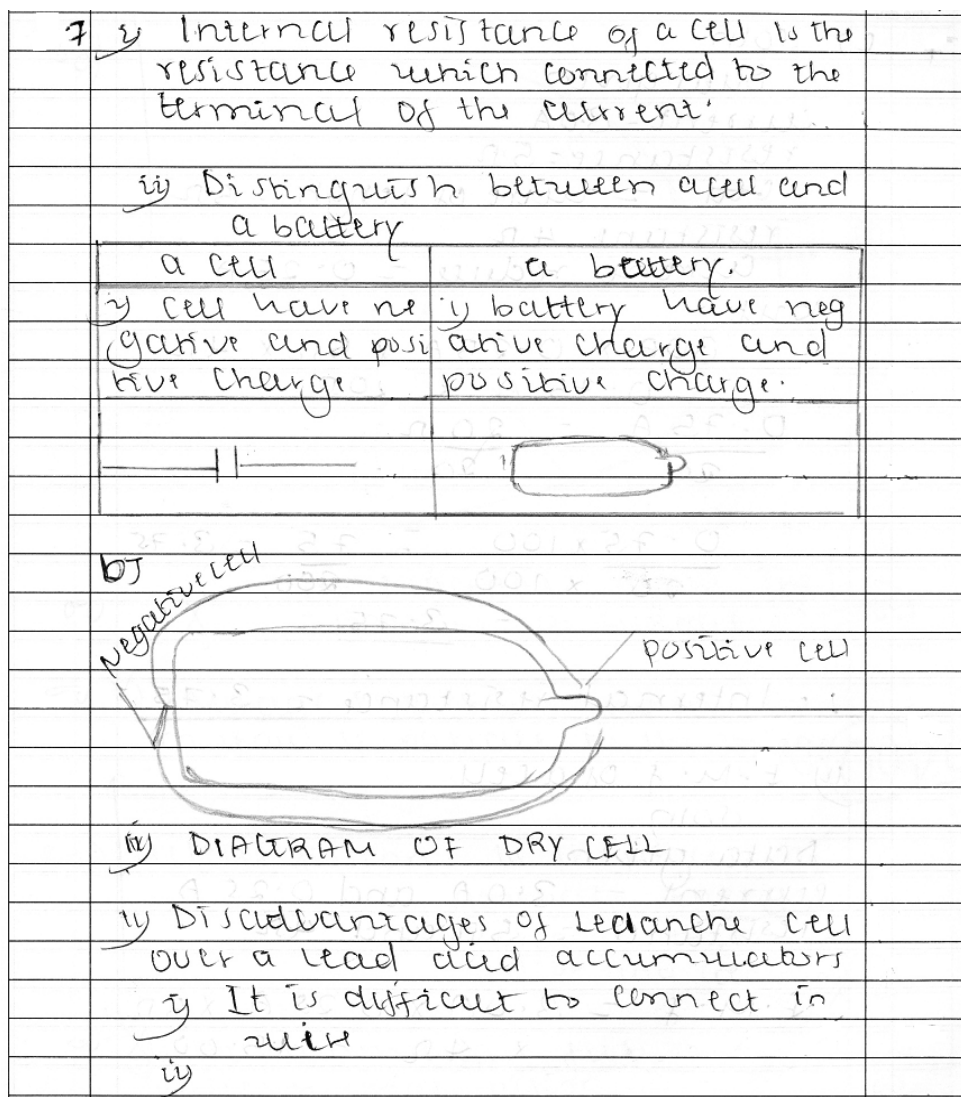 7 i) Internal resistance of a cell is the
resistance which connected to the
terminal of the current.
ii) Distinguish between a cell and
a battery
a cell
a battery.
i) cell have ne
gative and posi
tive charge
i) battery have neg
ative charge and
positive charge.
b)
Negative cell
positive cell
iv) DIAGRAM OF DRY CELL
ii) Disadvantages of Leclanche cell
over a lead acid accumulators
i) It is difficult to connect in
wire
ii)